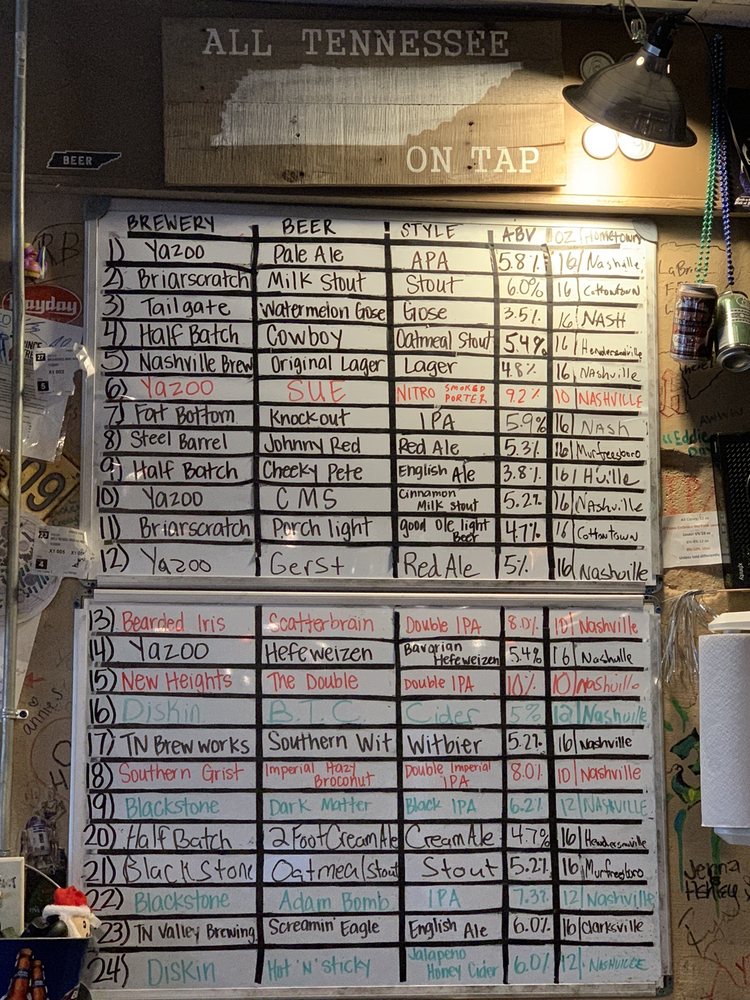 ALL TENNESSEE
ON TAP
BEER
BREWERY BEER STYLE ABV OZ/Hometown
1) Yazoo Pale Ale APA 5.8% 16/Nashville
2) Briarscratch Milk Stout Stout 6.0% 16/Cottontown
3) Tailgate Watermelon Gose Gose 3.5% 16/NASH
4) Half Batch Cowboy Oatmeal Stout 5.4% 16/Hendersonville
5) Nashville Brew Original Lager Lager 4.8% 16/Nashville
6) Yazoo SUE NITRO SMOKED PORTER 9.2% 10/NASHVILLE
7) Fat Bottom Knockout IPA 5.9% 16/Nash
8) Steel Barrel Johnny Red Red Ale 5.3% 16/Murfreesboro
9) Half Batch Cheeky Pete English Ale 3.8% 16/H'ville
10) Yazoo CMS Cinnamon Milk Stout 5.2% 16/Nashville
11) Briarscratch Porch light good ole light Beer 4.7% 16/Cottontown
12) Yazoo Gerst Red Ale 5% 16/Nashville
13) Bearded Iris Scatterbrain Double IPA 8.0% 10/Nashville
14) Yazoo Hefeweizen Bavarian Hefeweizen 5.4% 16/Nashville
15) New Heights The Double Double IPA 10% 10/Nashville
16) Diskin B.T.C. Cider 5% 12/Nashville
17) TN Brew works Southern Wit Witbier 5.2% 16/Nashville
18) Southern Grist Imperial Hazy Broconut Double Imperial IPA 8.0% 10/Nashville
19) Blackstone Dark Matter Black IPA 6.2% 12/NASHVILLE
20) Half Batch 2 Foot Cream Ale Cream Ale 4.7% 16/Hendersonville
21) Black Stone Oatmeal Stout Stout 5.2% 16/Murfresboro
22) Blackstone Adam Bomb IPA 7.3% 12/Nashville
23) TN Valley Brewing Screamin' Eagle English Ale 6.0% 16/Clarksville
24) Diskin Hot 'N' Sticky Jalapeno Honey Cider 6.0% 12/NASHVILLE